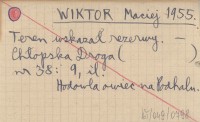 WIKTOR Maciej 1955.
Teren wskazał rezerwy. —
Chłopska Droga (
nr 38: 9, il.
Hodowla owiec na Podhalu.